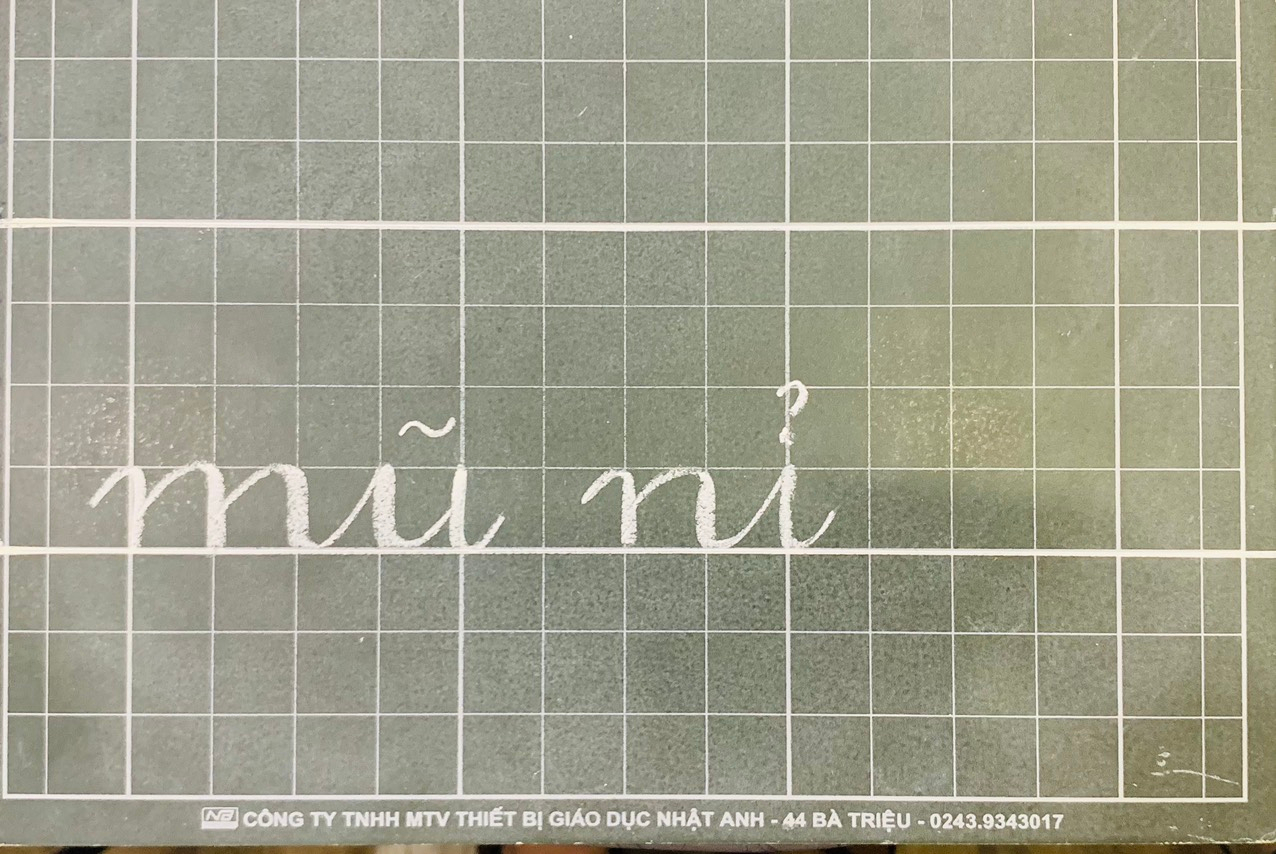 mũ nỉ
CÔNG TY TNHH MTV THIẾT BỊ GIÁO DỤC NHẬT ANH - 44 BÀ TRIỆU - 0243.9343017